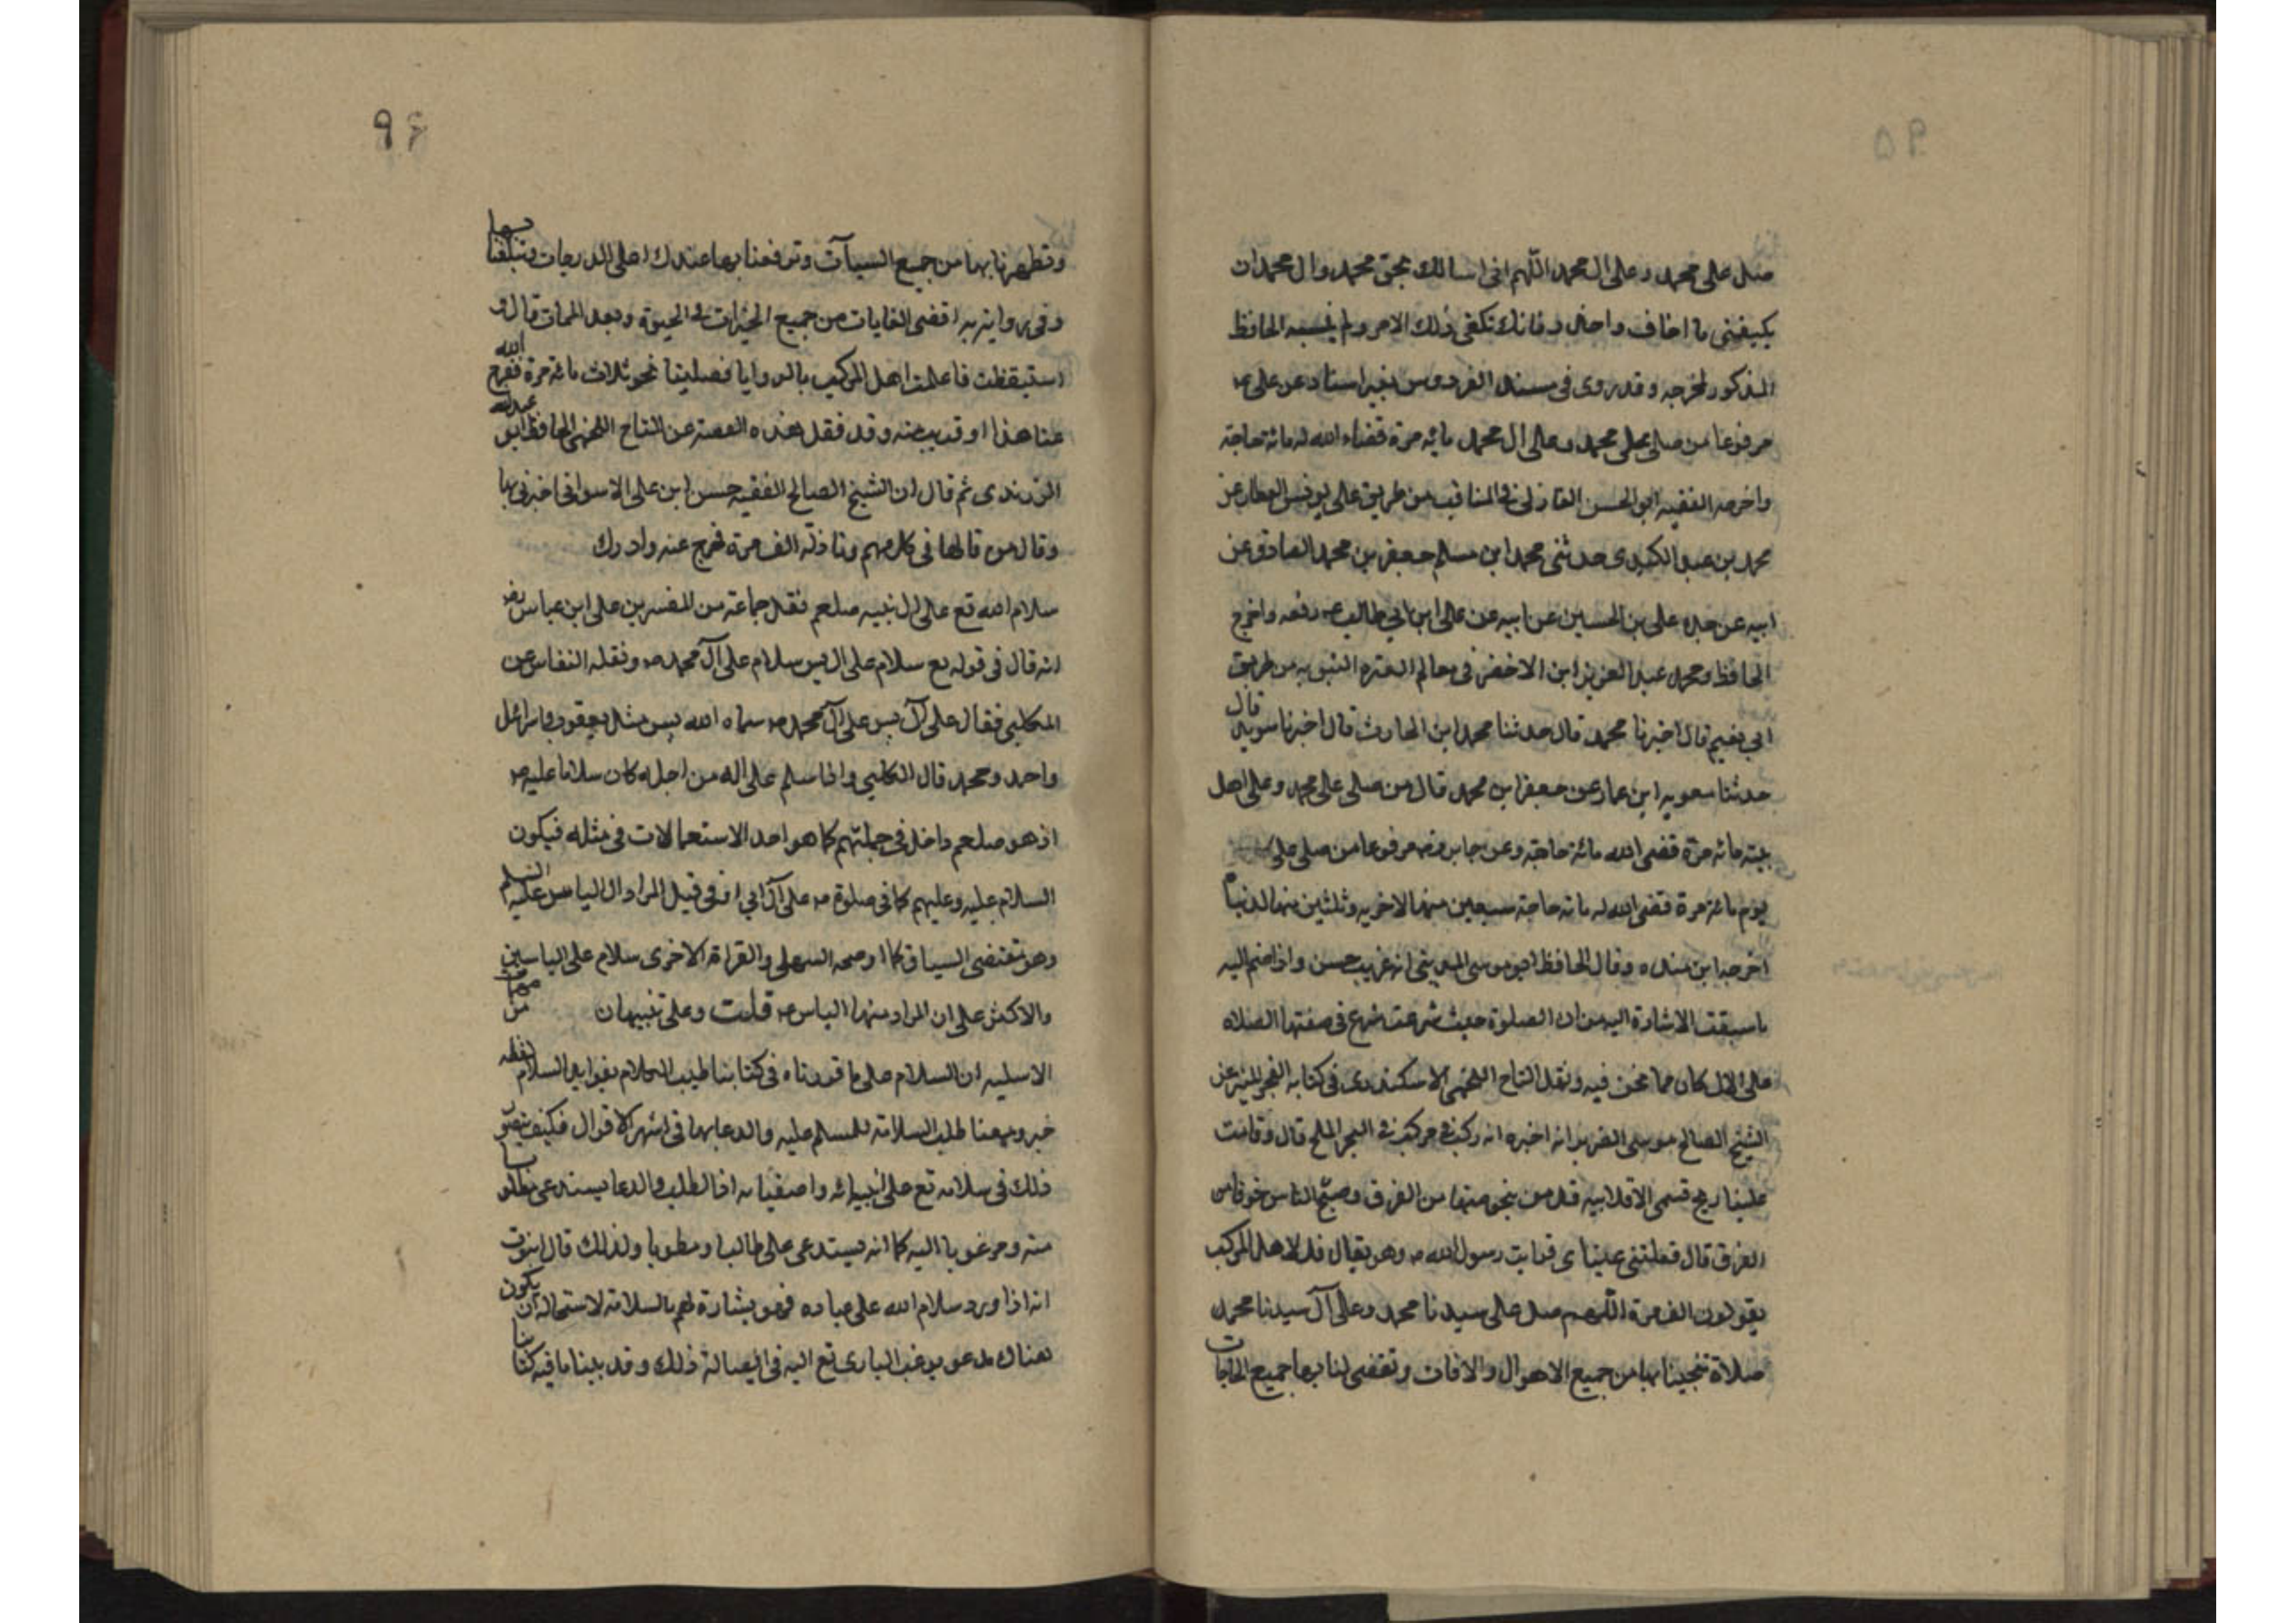 ٩٥
صل على محمد وعلى ال محمد اللهم انى اسالك بحق محمد وال محمد ان
يكيفنى ما اخاف واحذر فانك تكفى ذلك الامر ولم ينسبه الحافظ
المذكور لمخرجه وقد روى فى مسند الفردوس بغير اسناد عن على عم
مرفوعا من صلى على محمد وعلى ال محمد مائه مرة قضاء الله له مائة حاجة
واخرجه الفقيه ابو الحسن المغازلى فى المناقب من طريق على يونس العطار عن
محمد بن عبد الكيدى حدثنى محمد ابن مسلم جعفر بن محمد الصادق عن
ابيه عن جده على بن الحسين عن ابيه عن على ابن ابي طالب عم رفعه واخرج
الحافظ ومحمد عبد العزيز ابن الاخضر فى معالم العتره النبويه من طريق
ابى نعيم قال اخبرنا محمد قال حدثنا محمد ابن الحارث قال اخبرنا سويد قال
حدثنا معويه ابن عمار عن جعفر ابن محمد قال من صلى على محمد وعلى اهل
بيته مائة مرة قضى الله مائة حاجة وعن جابر رضه مرفوعا من صلى على
يوم مائة مرة قضى الله له مائة حاجة سبعين منها الاخريه وثلثين منها لدنيا
اخرجه ابن منده وقال الحافظ ابو موسى المدينى انه غريب حسن واذا ضم اليه
ما سبقت الاشارة اليه من ان الصلوة حيث شرعت شرع فى صفتها الصلاه
على الال كان مما نحن فيه ونقل التاج اللخمى الاسكندرى فى كتابه الفجر المنير عن
الشيخ الصالح موسى الضرير انه اخبره انه ركب فى مركب فى البحر الملح قال وقامت
علينا ريح تسمى الاقلابيه قل من ينجو منها من الغرق وضج الناس خوفا من
الغرق قال فغلبتنى عيناى فرايت رسول الله ص وهو يقال قل لاهل المركب
يقولون الف مرة اللهم صل على سيدنا محمد وعلى آل سيدنا محمد
صلاة تنجينا بها من جميع الاهوال والافات وتقضى لنا بها جميع الحاجات
٩٦
وتطهرنا بها من جميع السيآت وترفعنا بها عندك اعلى الدرجات وتبلغنا بها
وفى رواية به اقصى الغايات من جميع الخيرات فى الحيوة وبعد الممات قال و
استيقظت فاعلمت اهل المركب بالروايا فصلينا نحو ثلاث مائة مرة ففرج الله
عنا هذا او قريب منه وقد نقل هذه القصة عن التاج اللخمى الحافظ ابو عبد الله
الزرندى ثم قال ان الشيخ الصالح الفقيه حسن ابن على الاسوانى اخبرنى بها
وقال من قالها فى كل مهم ونازلة الف مرة فرج عنه وادرك
سلام الله تع على ال نبيه صلعم نقل جماعة من المفسرين على ابن عباس رضه
انه قال فى قوله تع سلام على ال يس سلام على آل محمد ص ونقله النقاش عن
الكلبى فقال على آل يس على آل محمد ص سماه الله يس مثل يعقوب واسرائل
واحد ومحمد قال الكلبي وانما سلم على اله من اجله كان سلاما عليه ص
اذ هو صلعم داخل فى جملتهم كما هو احد الاستعمالات فى مثله فيكون
السلام عليه وعليهم كما فى صلوة ص على آل ابي اوفى قيل المراد ال الياس عليه السلم
وهو مقتضى السياق كما اوضحه السهيلى والقراة الاخرى سلام على الياسين
والاكثر على ان المراد منها الياس عم قلت وعلى تنبيهان من مهمات
الاسليه ان السلام على ما قررناه فى كتابنا طيب الكلام بفوايد السلام لفظه
خبر ومعنا طلب السلامة للمسلم عليه والدعا بها فى اشهر الاقوال فكيف يتصور
ذلك فى سلامه تع على انبيائه واصفيائه اذ الطلب والدعا يستدعى مطلوبا
منه ومرغوبا اليه كما انه يستدعى على طالبا ومطوبا ولذلك قال
انه اذا ورد سلام الله على عباده فهو بشارة لهم بالسلامة لاستحالة ان يكون
هناك مدعو يرغب البارى تع اليه فى ايصالة ذلك وقد بينا ما فيه كتابنا